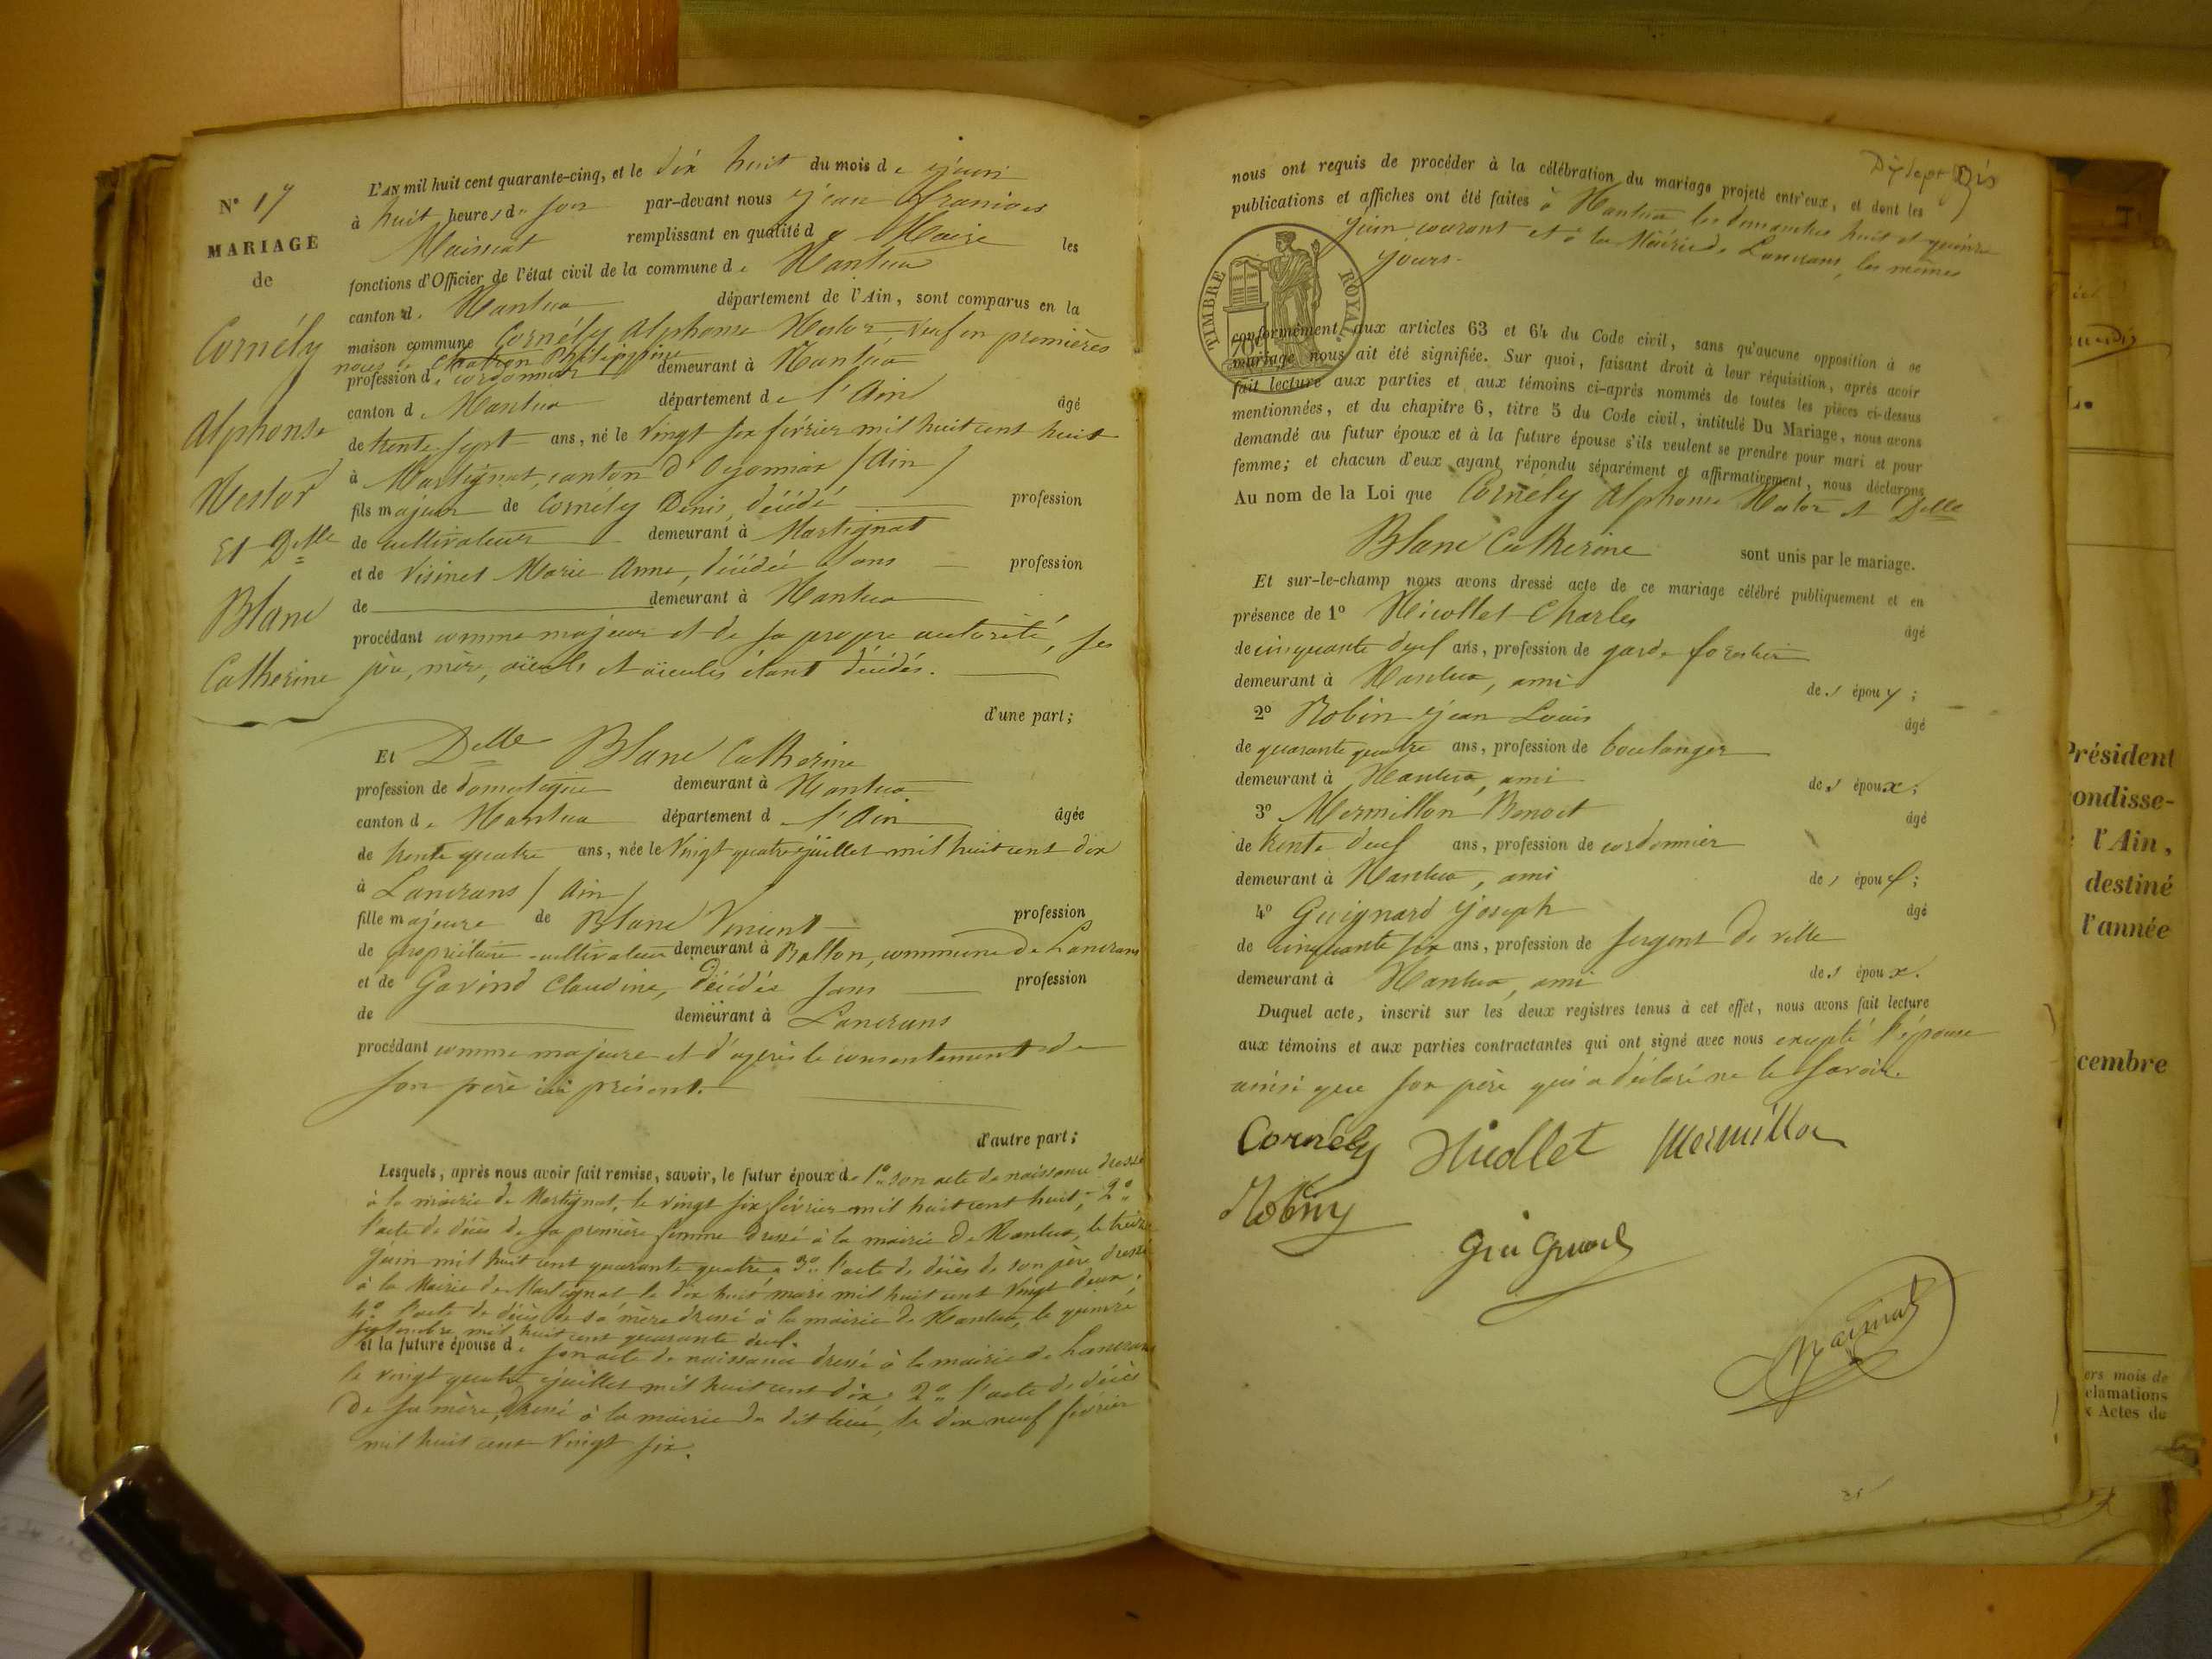 N° 17
MARIAGE
de
Cornély
Alphonse
Nestor
Et Delle
Blanc
Catherine
L'AN mil huit cent quarante-cinq, et le dix huit du mois de juin
à huit heures du soir par-devant nous Jean François
Maissiat remplissant en qualité de Maire les
fonctions d'Officier de l'état civil de la commune de Nantua
canton de Nantua département de l'Ain, sont comparus en la
maison commune Cornély Alphonse Nestor veuf en premières
noces de Philippine
profession de cordonnier demeurant à Nantua
canton de Nantua département de l'Ain âgé
de trente sept ans, né le vingt six février mil huit cent huit
à Martignat, canton d'Oyonnax (Ain)
fils majeur de Cornély Denis, décédé profession
de cultivateur demeurant à Martignat
et de Visinet Marie Anne, décédée sans profession
de demeurant à Nantua
procédant comme majeur et de sa propre autorité, ses
père, mère, aïeuls et aïeules étant décédés.
d'une part;
Et Delle Blanc Catherine
profession de domestique demeurant à Nantua
canton de Nantua département de l'Ain âgée
de trente quatre ans, née le vingt quatre juillet mil huit cent dix
à Lancrans (Ain)
fille majeure de Blanc Vincent profession
de propriétaire-cultivateur demeurant à Ballon, commune de Lancrans
et de Gavind Claudine, décédée sans profession
de demeurant à Lancrans
procédant comme majeure et d'après le consentement de
son père ici présent.
d'autre part;
Lesquels, après nous avoir fait remise, savoir, le futur époux de 1° son acte de naissance dressé
à la mairie de Martignat, le vingt six février mil huit cent huit; 2°
l'acte de décès de sa première femme dressé à la mairie de Nantua, le treize
juin mil huit cent quarante quatre; 3° l'acte de décès de son père dressé
à la Mairie de Martignat le dix huit mars mil huit cent vingt deux;
4° l'acte de décès de sa mère dressé à la mairie de Nantua, le quinze
septembre mil huit cent quarante deux.
et la future épouse de son acte de naissance dressé à la mairie de Lancrans
le vingt quatre juillet mil huit cent dix; 2° l'acte de décès
de sa mère, dressé à la mairie du dit lieu, le dix neuf février
mil huit cent vingt six.
Dix sept Bis
nous ont requis de procéder à la célébration du mariage projeté entr'eux, et dont les
publications et affiches ont été faites à Nantua les dimanches huit et quinze
juin courant et à la Mairie de Lancrans, les mêmes
jours.
TIMBRE ROYAL
70
conformément aux articles 63 et 64 du Code civil, sans qu'aucune opposition à ce
mariage nous ait été signifiée. Sur quoi, faisant droit à leur réquisition, après avoir
fait lecture aux parties et aux témoins ci-après nommés de toutes les pièces ci-dessus
mentionnées, et du chapitre 6, titre 5 du Code civil, intitulé Du Mariage, nous avons
demandé au futur époux et à la future épouse s'ils veulent se prendre pour mari et pour
femme; et chacun d'eux ayant répondu séparément et affirmativement, nous déclarons
Au nom de la Loi que Cornély Alphonse Nestor et Delle
Blanc Catherine sont unis par le mariage.
Et sur-le-champ nous avons dressé acte de ce mariage célébré publiquement et en
présence de 1° Nicollet Charles âgé
de cinquante deux ans, profession de garde forestier
demeurant à Nantua, ami des époux;
2° Robin Jean Louis âgé
de quarante quatre ans, profession de boulanger
demeurant à Nantua, ami des époux;
3° Mermillon Benoit âgé
de trente deux ans, profession de cordonnier
demeurant à Nantua, ami des époux;
4° Guignard Joseph âgé
de cinquante six ans, profession de sergent de ville
demeurant à Nantua, ami des époux.
Duquel acte, inscrit sur les deux registres tenus à cet effet, nous avons fait lecture
aux témoins et aux parties contractantes qui ont signé avec nous excepté l'épouse
ainsi que son père qui a déclaré ne le savoir.
Cornély Nicollet Mermillon
Robin
Guignard
Maissiat
Président
ondisse-
l'Ain,
destiné
l'année
cembre
ers mois de
clamations
x Actes de